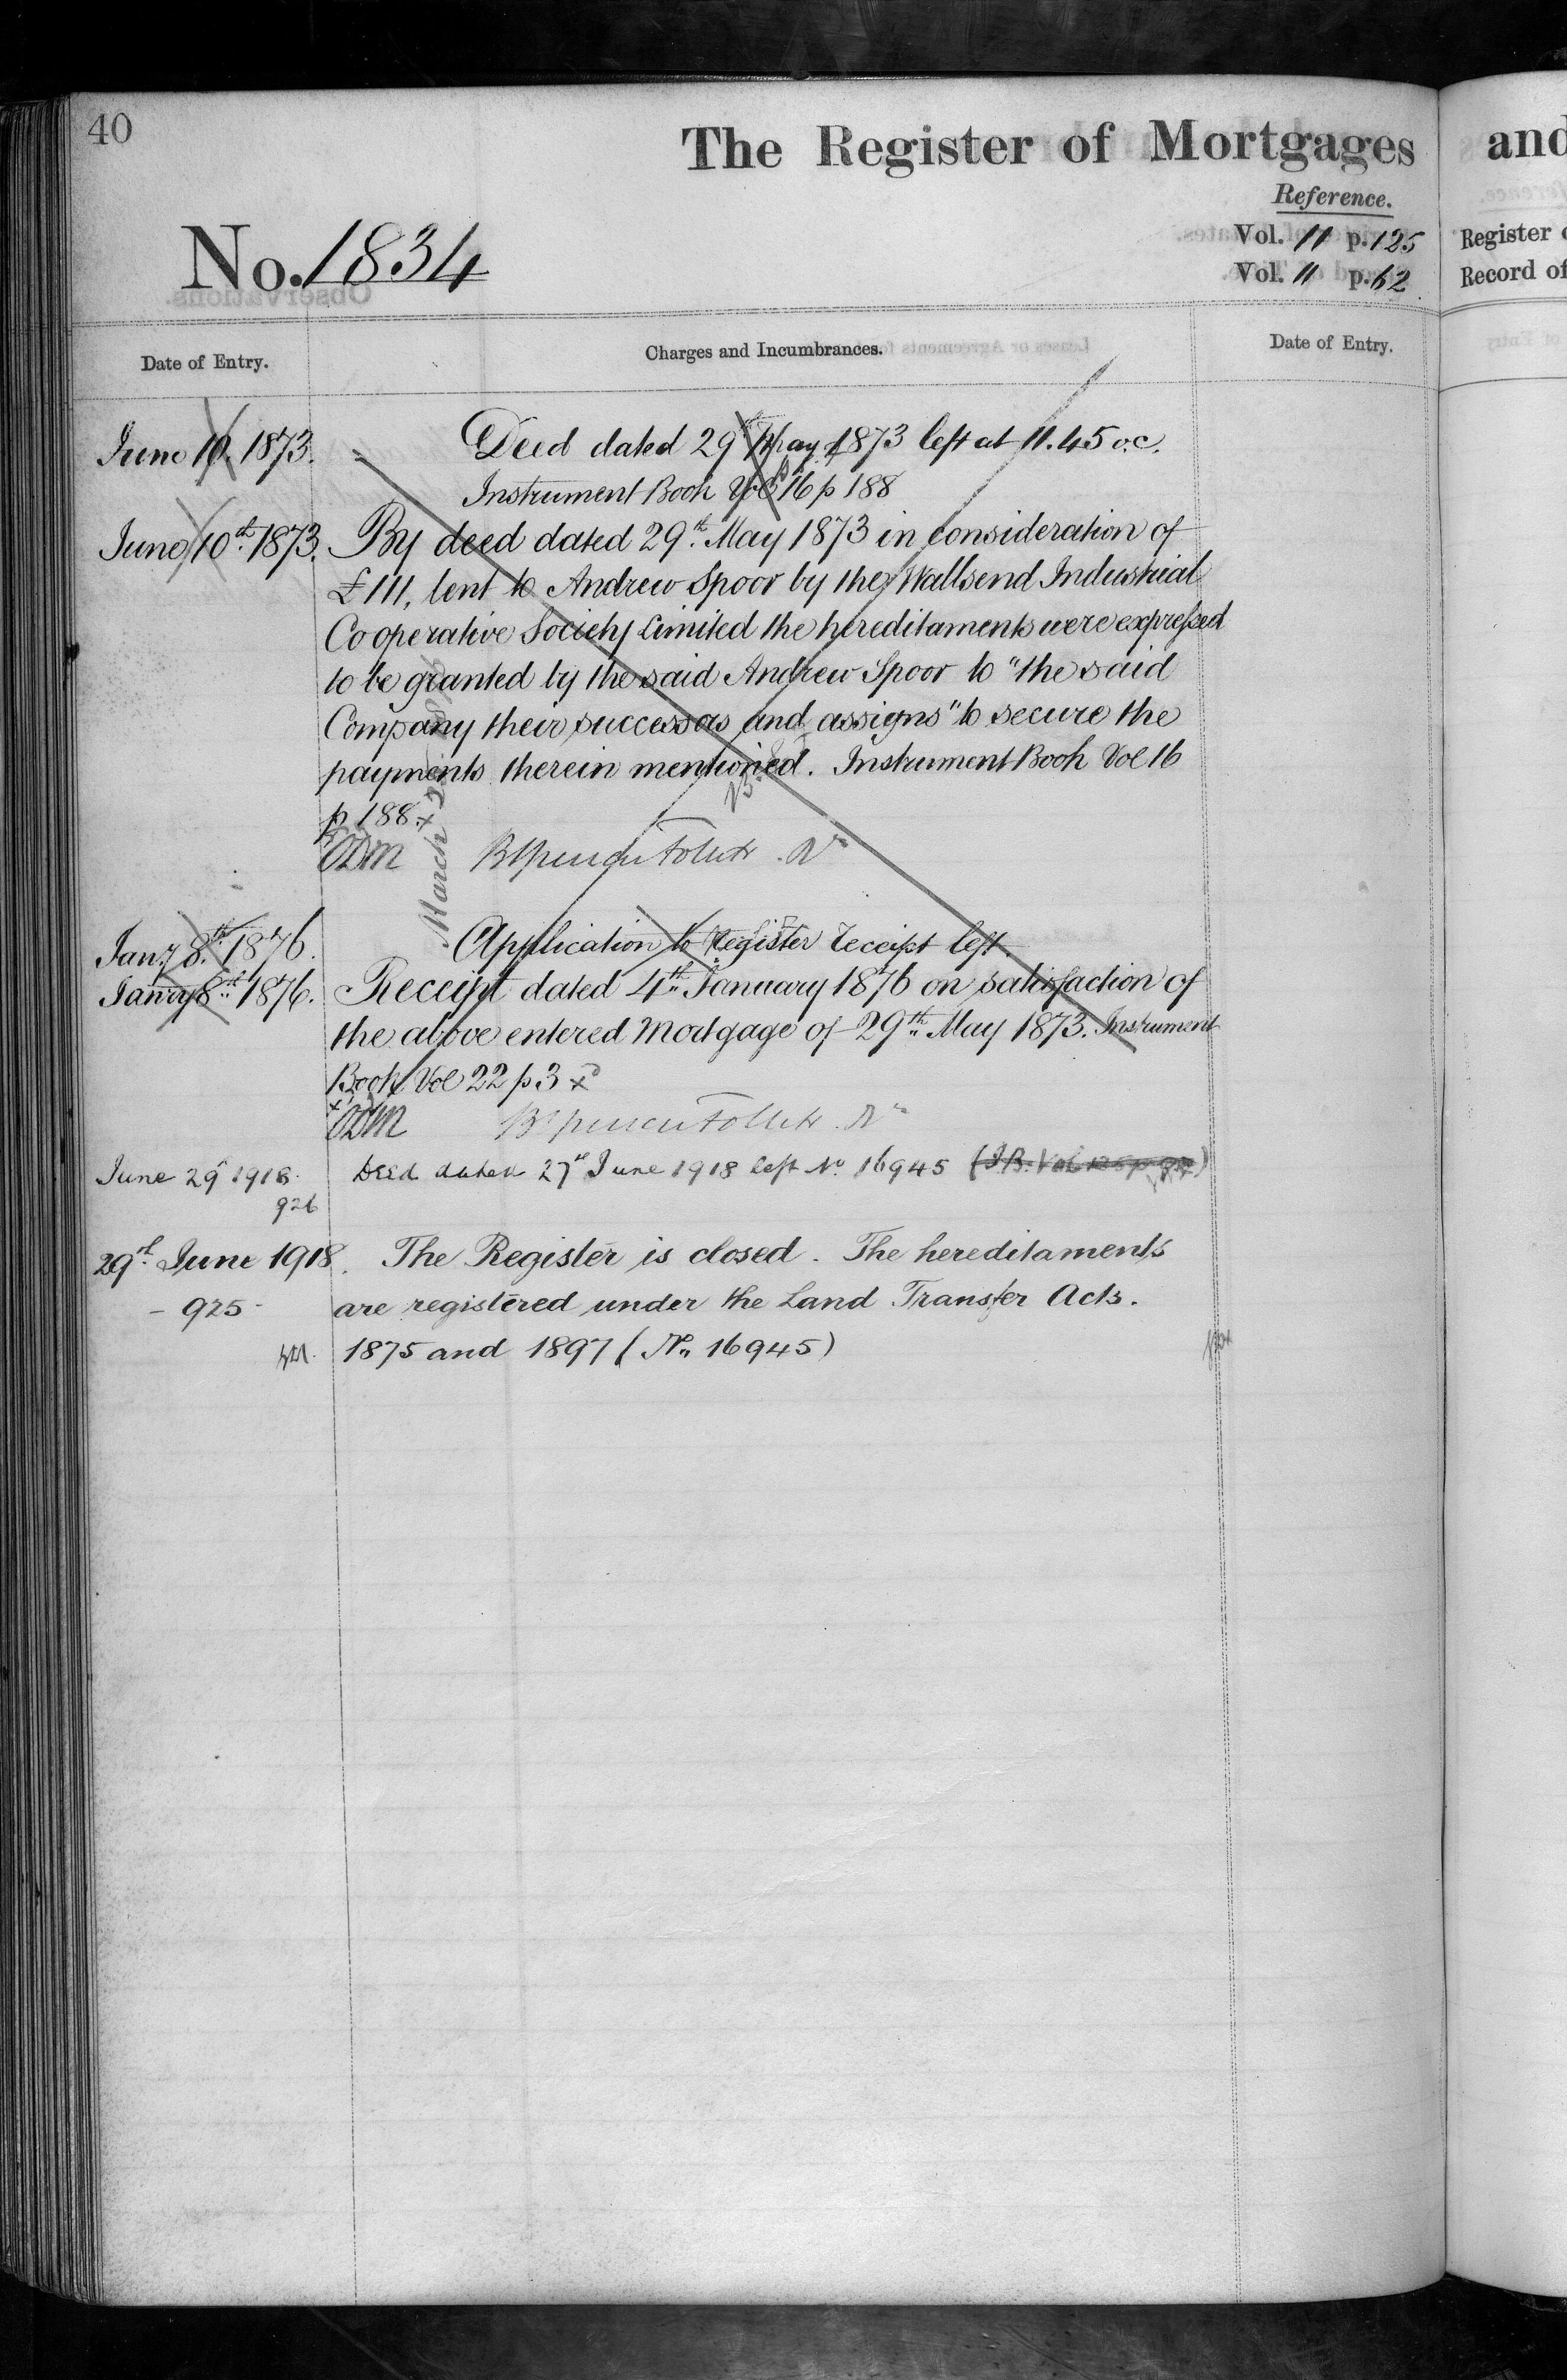 40
The Register of Mortgages
Reference.
No. 1834
Vol. 11 p. 125
Vol. 11 p. 62
Date of Entry.
Charges and Incumbrances.
Date of Entry.
June 10. 1873.
Deed dated 29th May 1873 left at 11.45 o.c.
Instrument Book Vol 16 p 188
June 10th 1873. By deed dated 29th May 1873 in consideration of
£111, lent to Andrew Spoor by the Wallsend Industrial
Co operative Society Limited the hereditaments were expressed
to be granted by the said Andrew Spoor to "the said
Company their successors and assigns" to secure the
payments therein mentioned. Instrument Book Vol 16
p 188. x
ODM
March
Jany 8th 1876.
Application to Register receipt left.
Janry 8th 1876. Receipt dated 4th January 1876 on satisfaction of
the above entered Mortgage of 29th May 1873. Instrument
Book Vol 22 p 3 x
ODM
June 29th 1918. Deed dated 27th June 1918 left No. 16945 (I.B. Vol
926
29th June 1918. The Register is closed. The hereditaments
- 925 - are registered under the Land Transfer Acts.
1875 and 1897 (No. 16945)
and
Register
Record of